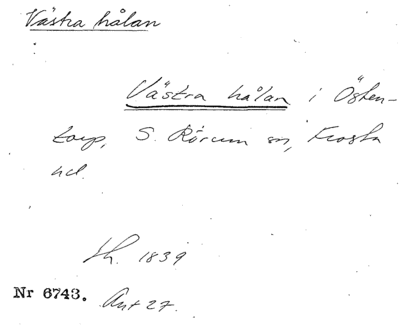 Västra hålan
Västra hålan i Östen-
torp, S. Rörum sn, Frosta
hd.
Sk. 1839
Nr 6743. Ant 27.